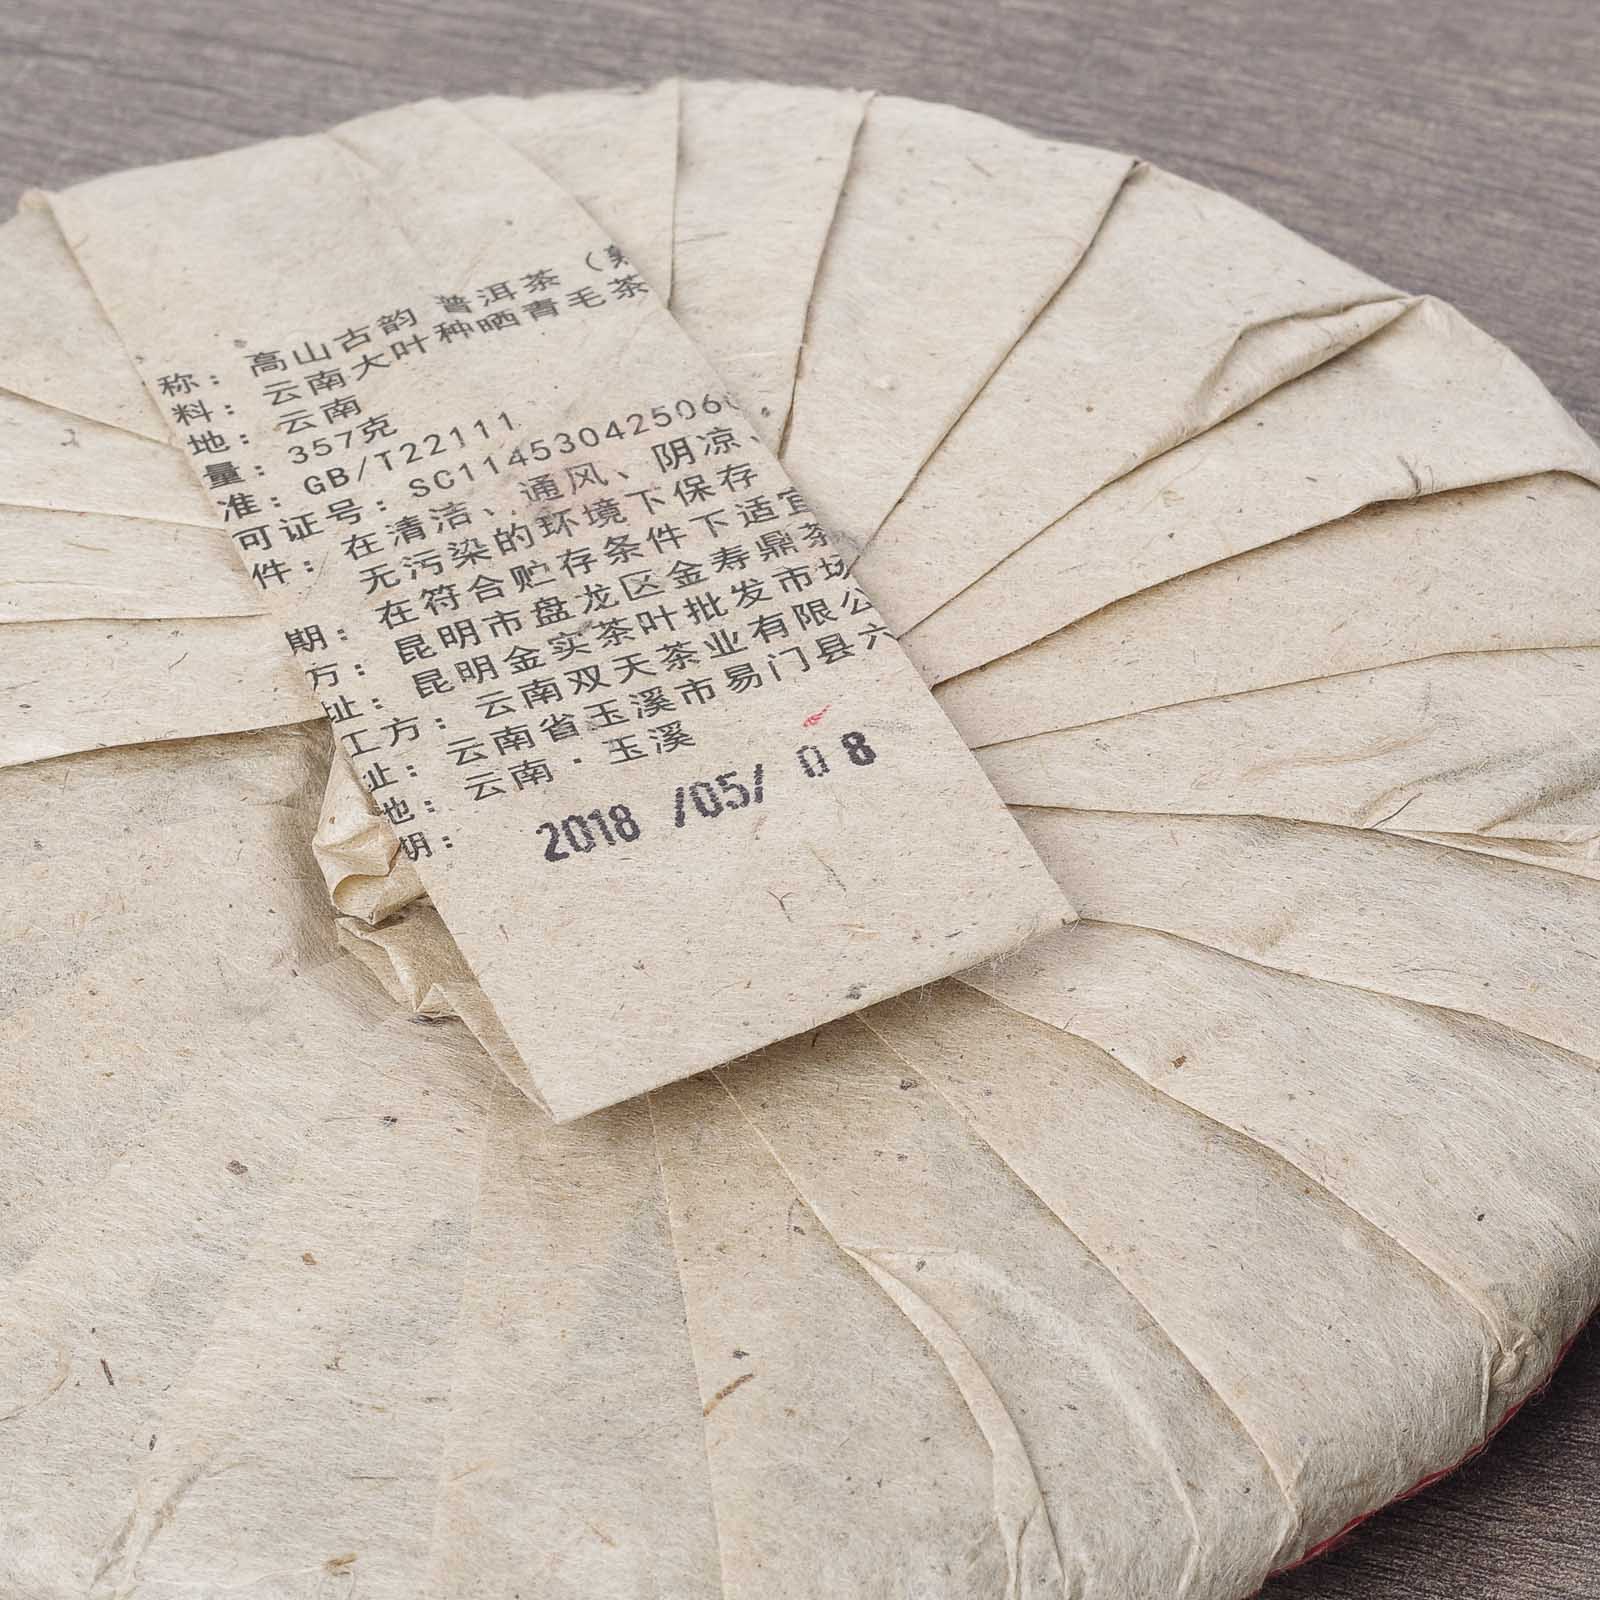 称：高山古韵 普洱茶（熟
料：云南大叶种晒青毛茶
地：云南
量：357克
准：GB/T22111
可证号：SC11453042506
件：在清洁、通风、阴凉、
无污染的环境下保存
期：在符合贮存条件下适宜
方：昆明市盘龙区金寿鼎茶
址：昆明金实茶叶批发市场
工方：云南双天茶业有限公
址：云南省玉溪市易门县六
地：云南·玉溪
期：2018 /05/ 08